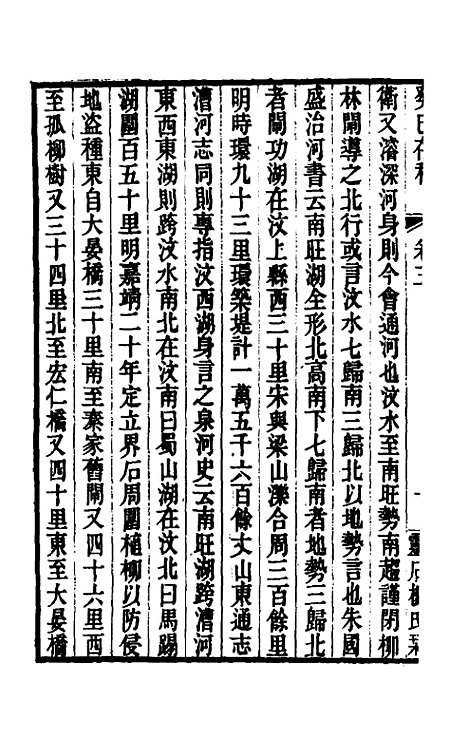 癸巳存稿 卷三 靈石楊氏栞
衞又濬深河身則今會通河也汶水至南旺勢南趨謹閉柳
林閘導之北行或言汶水七歸南三歸北以地勢言也朱國
盛治河書云南旺湖全形北高南下七歸南者地勢三歸北
者閘功湖在汶上縣西三十里宋與梁山濼合周三百餘里
明時環九十三里環築堤計一萬五千六百餘丈山東通志
漕河志同則專指汶西湖身言之泉河史云南旺湖跨漕河
東西東湖則跨汶水南北在汶南曰蜀山湖在汶北曰馬踢
湖圍百五十里明嘉靖二十年定立界石周圍植柳以防侵
地盜種東自大晏橋三十里南至秦家舊閘又四十六里西
至孤柳樹又三十四里北至宏仁橋又四十里東至大晏橋